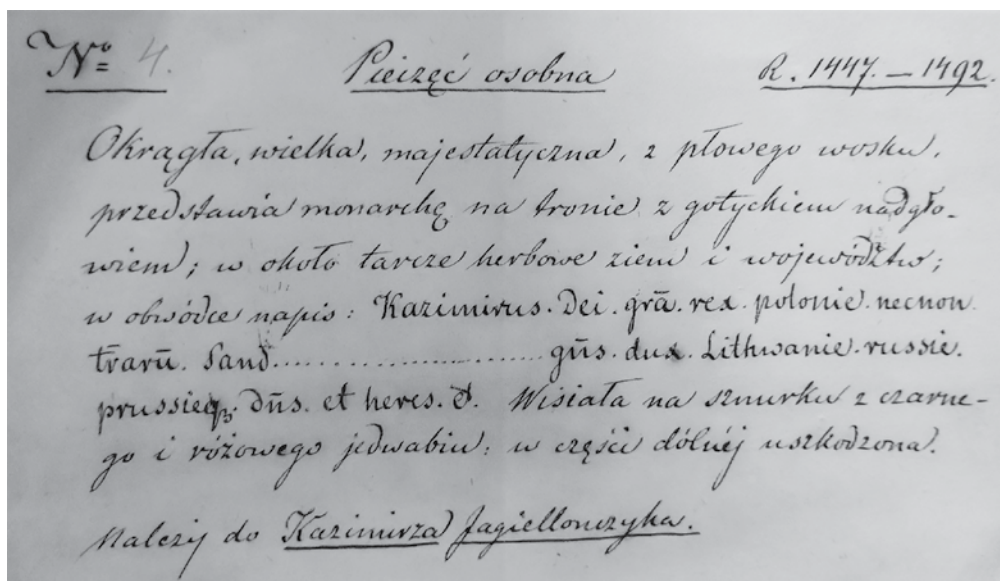 № 4. Pieczęć osobna R. 1447. — 1492.
Okrągła, wielka, majestatyczna, z płowego wosku,
przedstawia monarchę na tronie z gotyckiem nadgło-
wiem; w około tarcze herbowe ziem i województw;
w obwódce napis: Kazimirus. Dei. grā. rex. polonie. necnon
t̄rarū. Sand........................ gn̄s. dux. Lithwanie. russie.
prussieqꝫ. dn̄s. et heres. &. Wisiała na sznurku z czarne-
go i różowego jedwabiu; w części dólnéj uszkodzona.
Należy do Kazimirza Jagiellonczyka.